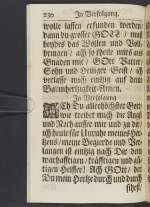 236 In Verfolgung.
wolle lassen erfunden werden
dann du grosser GOTT / must
beydes das Wollen und Voll-
bringen / ach so theile mit aus
Gnaden mir / GOtt Vatter /
Sohn und Heiliger Geist / ich
verlasse mich einzig auf deine
Barmhertzigkeit / Amen.
In Verfolgung
ACh Du allerhöchster Gott
wie treibet mich die Angst
und Noth ausser mir und
ich heule für Unruhe meines Her-
tzens / meine Begierde und Ver-
langen ist einzig nach Dir dem
warhafftigen / kräfftigen und all-
tigen Helffer! Ach GOtt / der
Du mein Hertze durch und durch